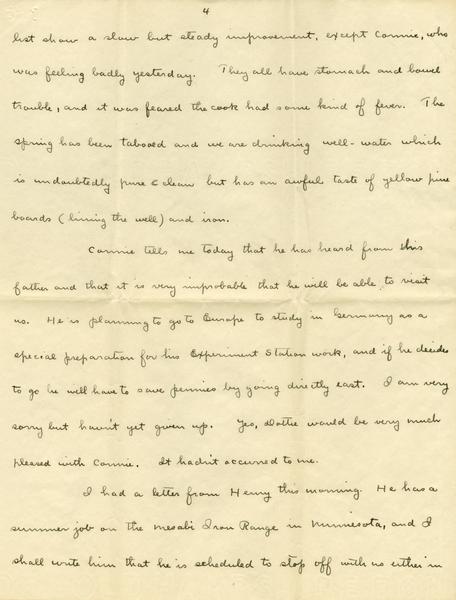 4
list show a slow but steady improvement, except Connie, who
was feeling badly yesterday. They all have stomach and bowel
trouble, and it was feared the cook had some kind of fever. The
spring has been tabooed and we are drinking well-water which
is undoubtedly pure & clean but has an awful taste of yellow pine
boards (lining the well) and iron.
Connie tells me today that he has heard from his
father and that it is very improbable that he will be able to visit
us. He is planning to go to Europe to study in Germany as a
special preparation for his Experiment Station work, and if he decides
to go he will have to save pennies by going directly east. I am very
sorry but havn't yet given up. Yes, Dottie would be very much
pleased with Connie. It hadn't occurred to me.
I had a letter from Henry this morning. He has a
summer job on the Mesabi Iron Range in Minnesota, and I
shall write him that he is scheduled to stop off with us either in